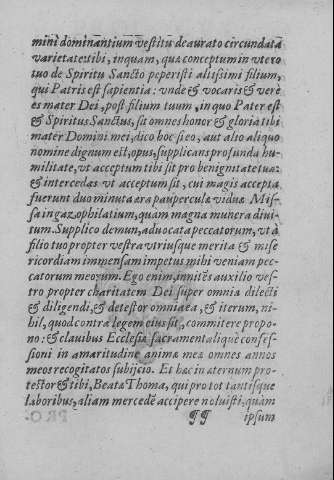 mini dominantium vestitu deaurato circundata
varietate: tibi, inquam, quæ conceptum in vtero
tuo de Spiritu Sancto peperisti altissimi filium,
qui Patris est sapientia: vnde & vocaris & verè
es mater Dei, post filium tuum, in quo Pater est
& Spiritus Sanctus, sit omnes honor & gloria tibi
mater Domini mei, dico hoc si eo, aut alio aliquo
nomine dignum est, opus, supplicans profunda hu-
militate, vt acceptum tibi sit pro benignitate tua:
& intercedas vt acceptum sit, cui magis accepta
fuerunt duo minuta æra pauperculæ viduæ Mis-
sa in gazophilatium, quàm magna munera diui-
tum. Supplico demun, aduocata peccatorum, vt à
filio tuo propter vestra vtriusque merita & mise
ricordiam immensam impetus mihi veniam pec-
catorum meorum. Ego enim, innitēs auxilio ves-
tro propter charitatem Dei super omnia dilecti
& diligendi, & detestor omnia ea, & iterum, ni-
hil, quod contra legem eius sit, committere propo-
no: & clauibus Ecclesiæ sacramentalique confes-
sioni in amaritudine animæ meæ omnes annos
meos recogitatos subijcio. Et hac in æternum pro-
testor & tibi, Beate Thoma, qui pro tot tantisque
laboribus, aliam mercedē accipere noluisti, quàm
¶¶ ipsum